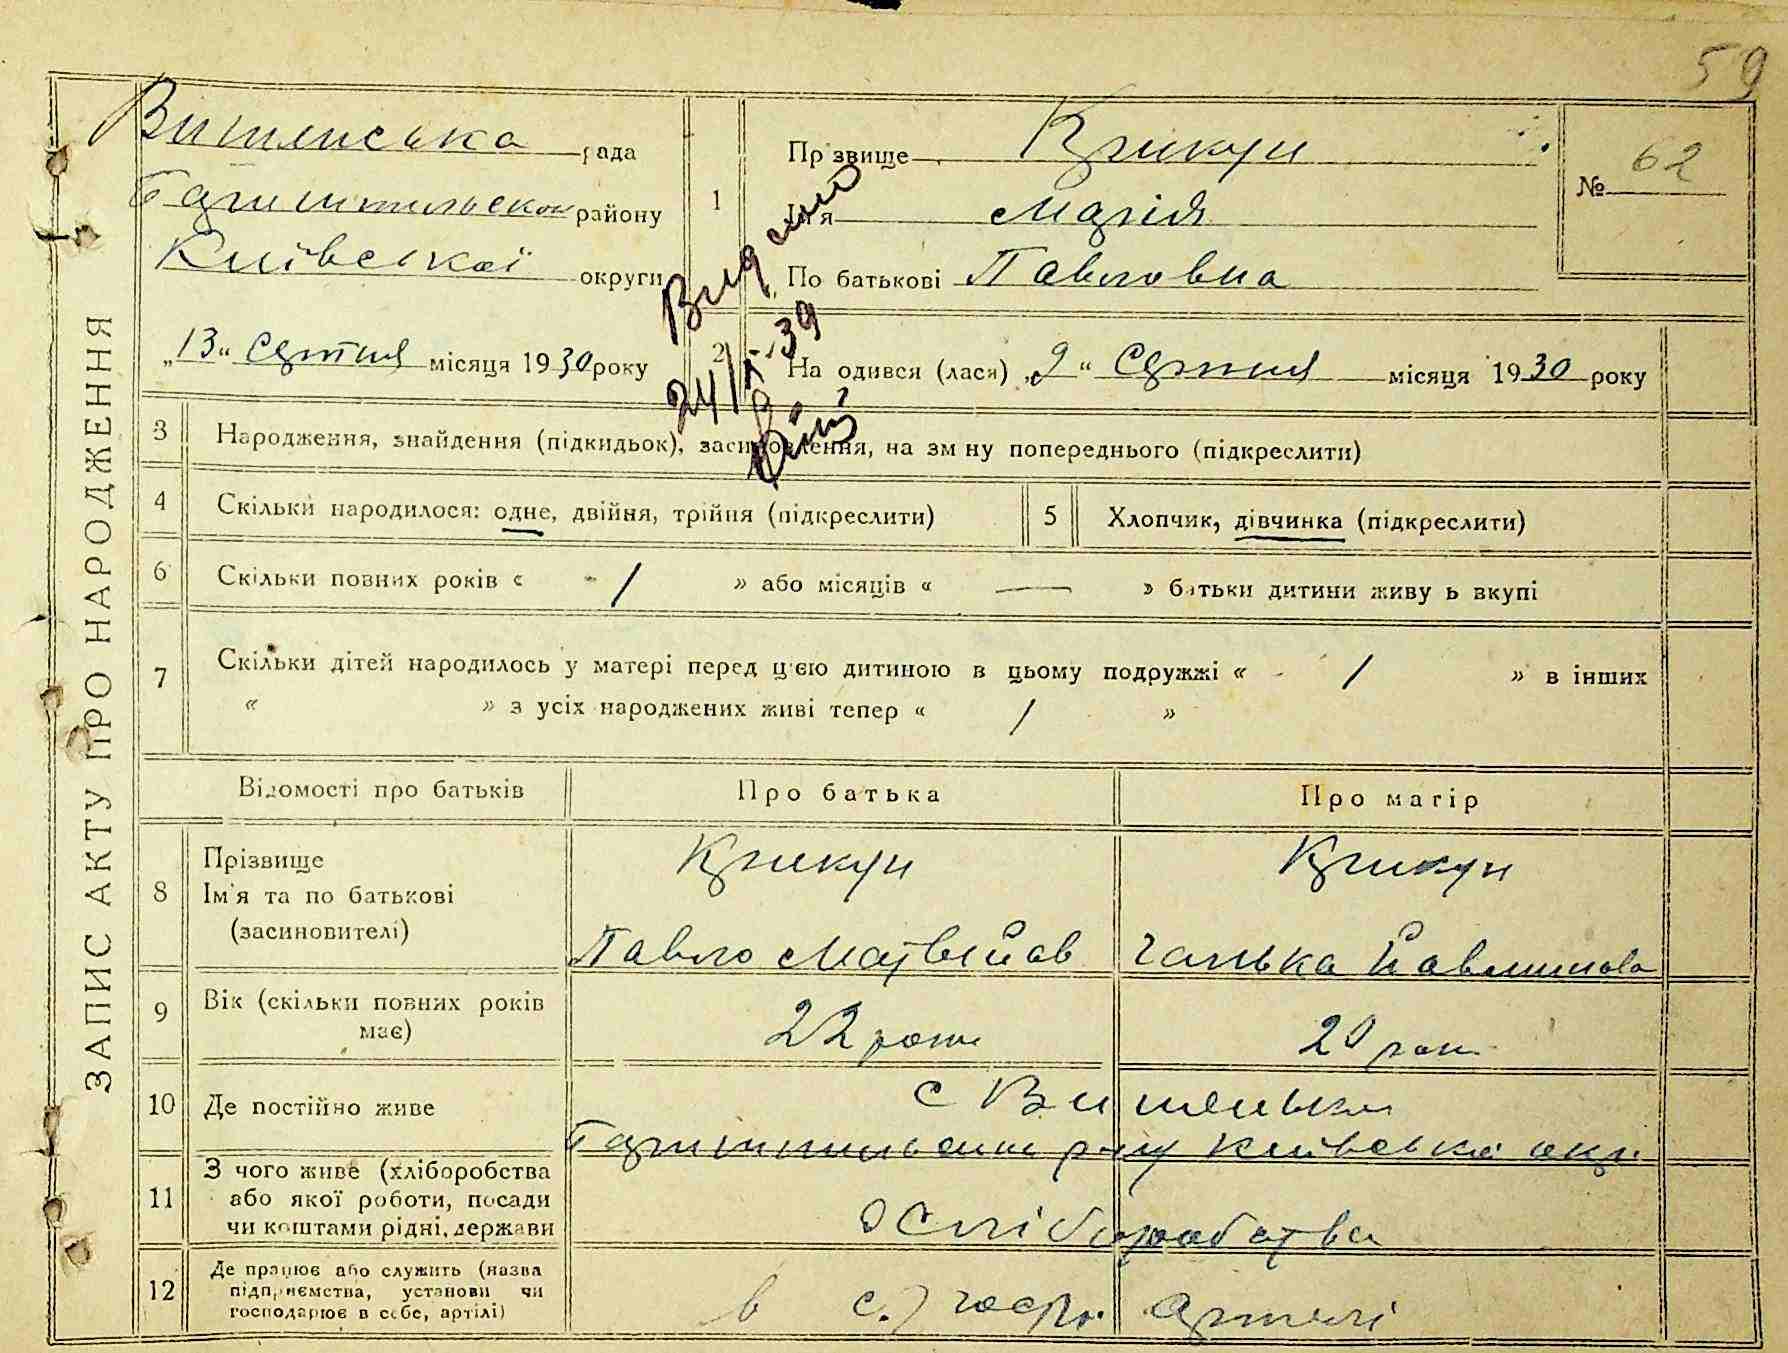 59
ЗАПИС АКТУ ПРО НАРОДЖЕННЯ
рада
району
Київської округи
1
Прізвище Крикун
Ім'я Марія
По батькові Павловна
№ 62
„13“ Серпня місяця 1930 року
2
На одився (лася) „9“ Серпня місяця 1930 року
24/X-39
3 Народження, знайдення (підкидьок), засиновлення, на зм ну попереднього (підкреслити)
4 Скільки народилося: одне, двійня, трійня (підкреслити)
5 Хлопчик, дівчинка (підкреслити)
6 Скільки повних років « - 1 » або місяців « — » батьки дитини живу ь вкупі
7 Скільки дітей народилось у матері перед цією дитиною в цьому подружжі « - 1 » в інших
« » з усіх народжених живі тепер « 1 »
Відомості про батьків
Про батька
Про матір
8 Прізвище
Ім'я та по батькові
(засиновителі)
Крикун
Павло Матвійов
Крикун
Ганька
9 Вік (скільки повних років
має)
22 роки
20 рок
10 Де постійно живе
с Вишеньки
11 З чого живе (хліборобства
або якої роботи, посади
чи коштами рідні, держави
Хліборобства
12 Де працює або служить (назва
підприємства, установи чи
господарює в себе, артілі)
в с.) госп. артелі